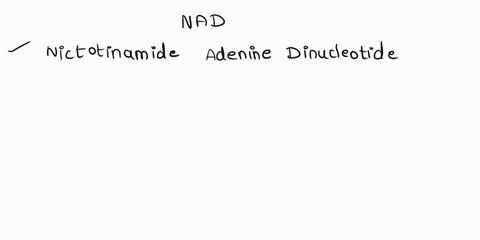 NAD
Nictotinamide Adenine Dinucleotide